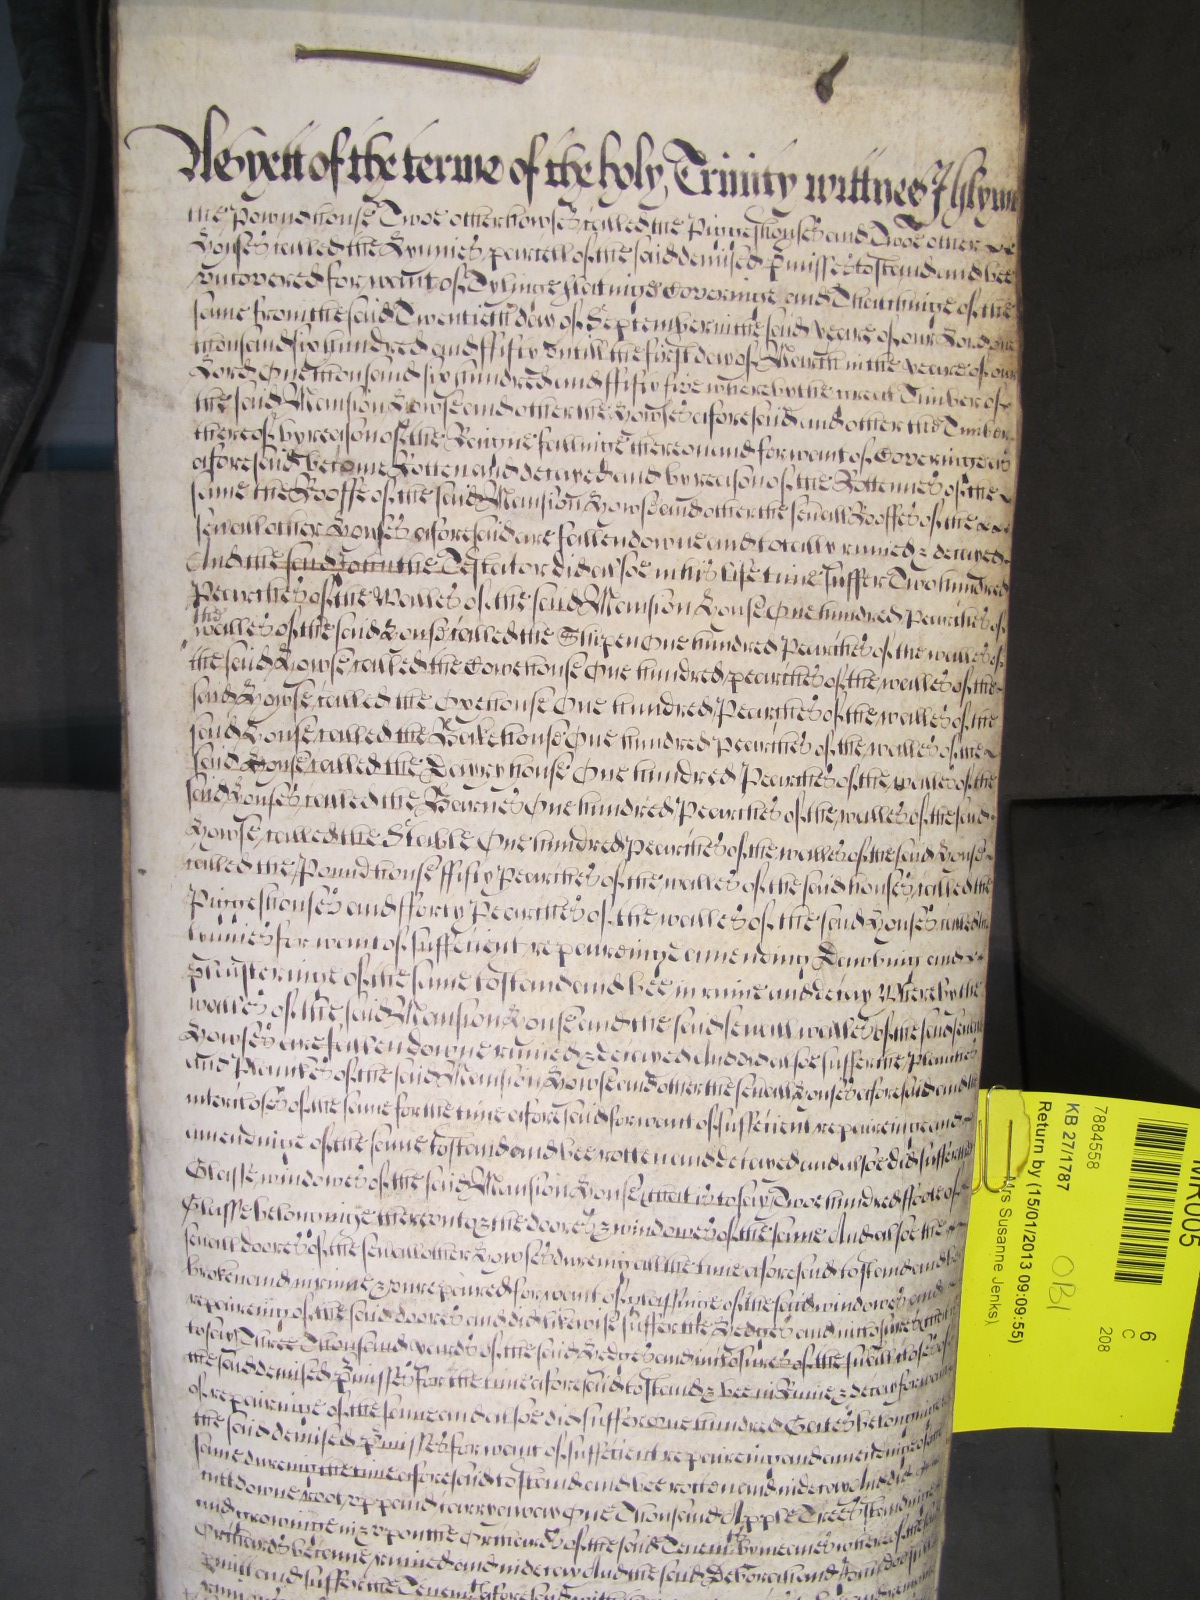 As yett of the terme of the holy Trinity wittnes J Glynne
the Pownd house Twoe other howses called the Pigges houses and Twoe other
houses called the Lynnies parcell of the said demised pmisses to stand and bee
uncovered for want of Tylinge Coveringe and Thatchinge of the
same from the said Twentieth day of September in the said yeare of our Lord one
thousand six hundred and ffifty untill the first day of March in the yeare of our
Lord One thousand six hundred and ffifty five whereby the great Timber of
the said Mansion howse and other the howses aforesaid and other the Timber
thereof by reason of the Raigne fallinge thereon and for want of Coveringe as
aforesaid become Rotten and decayed and by reason of the Rottennes of the
same the Rooffe of the said Mansion Howse and other the sevall Rooffes of the
sevall other howses aforesaid are fallen downe and totally ruined & decayed
And the said John the Testator did alsoe in his life time suffer Two hundred
Pearches of the Walles of the said Mansion House One hundred Pearches of
the walles of the said House called the Shipen One hundred Pearches of the walles of
the said Howse called the Cowehouse One hundred pearches of the walles of the
said Howse called the Oxehouse One hundred Pearches of the walles of the
said House called the Bakehouse One hundred Pearches of the walles of the
said House called the Dayry house One hundred Pearches of the walles of the
said Houses called the Barnes One hundred Pearches of the walles of the said
Howse called the Stable One hundred Pearches of the walles of the said House
called the Pound house ffifty Pearches of the walles of the said houses called the
Pigges houses and fforty Pearches of the walles of the said Houses called the
Lynnies for want of suffitient repairdinge amending Dawbing and
Plaisteringe of the same to stand and bee in ruine and decay Whereby the
walles of the said Mansion House and the said sevall walles of the said sevall
Howses are fallen downe ruined & decayed And did alsoe suffer the Planches
and Planckes of the said Mansion Howse and other the sevall Houses aforesaid and the
of the same for the time aforesaid for want of suffitient repairinge and
amendinge of the same to stand and bee rotten and decayed and alsoe did suffer the
Glasse windowes of the said Mansion House (that is to say) Twoe hundred ffoote of
Glasse belonginge thereunto & the doores & windowes of the same And alsoe the
sevall doores of the sevall other Howses dureing all the time aforesaid to stand and bee
broken and in ruine & unrepaired for want of glassinge of the said windowes and
repaireing of the said doores and did likewise suffer the Hedges and inclosures (that is
to say) Three Thousand yeards of the said Hedges and inclosures of the sevall closes of
the said demised pmisses for the time aforesaid to stand & bee in Ruine & decay for want
of repairinge of the same and alsoe did suffer one hundred Gates belonginge to
the said demised pmisses for want of suffitient repaireing and amendinge of the
same dureing the time aforesaid to stand and bee rotten and in decay And did
cutt downe root upp and carry away One Thousand Apple Trees standinge
and growinge in & upon the Orchards of the said Tenemts by meanes whereof the said
Orchards became ruined and in decay And the said Deborah and
pmitt and suffer the Tenemts aforesaid with
MR005
6
C
208
7884558
KB 27/1787
OBI
Return by (15/01/2013 09:09:55)
Mrs Susanne Jenks)